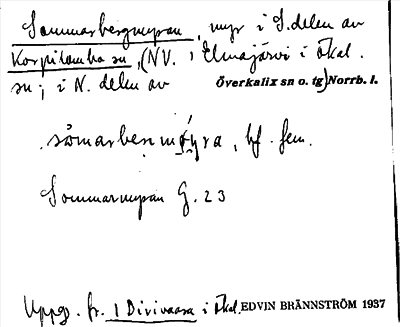 Sommarbergmyran, myr i S. delen av
Korpilombo sn, (NV. Elmajärvi i Ökal.
sn; i N. delen av Överkalix sn o. tg) Norrb. l.
Sommarmyran G. 23
Uppg. fr. 1 Divivaara i Ökal. EDVIN BRÄNNSTRÖM 1937